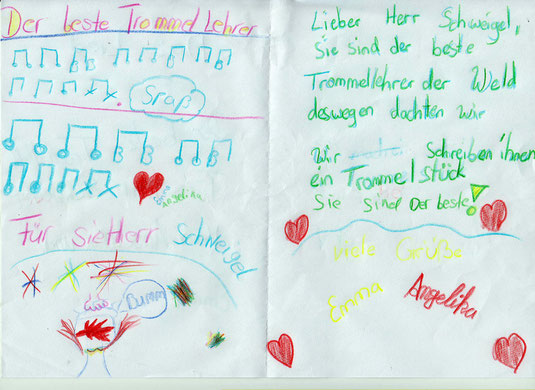 Der beste Trommel Lehrer
Spaß
Für sie Herr Schweigel
Bumm
Lieber Herr Schweigel,
Sie sind der beste
Trommellehrer der Weld
deswegen dachten wir
wir Schreiben ihnen
ein Trommelstück
Sie sind Der beste!
viele Grüße
Emma Angelika